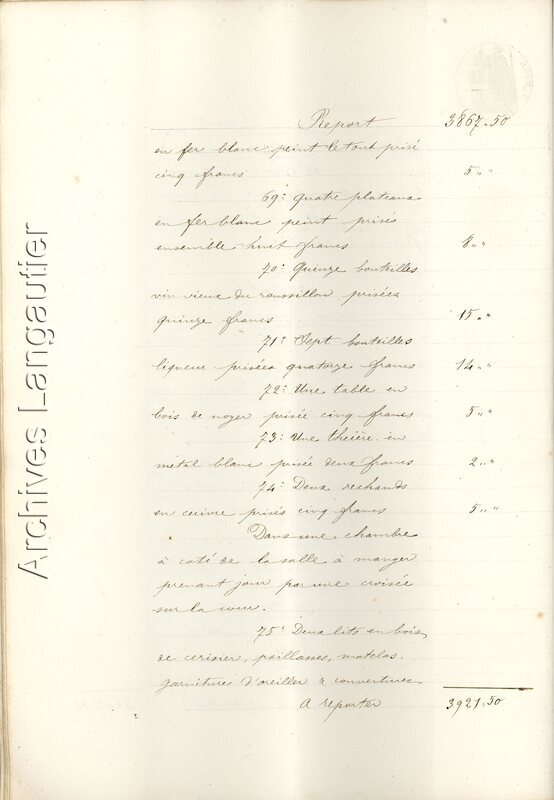 Report 3867.50
en fer blanc peint le tout prisé
cinq francs 5 " "
69: quatre plateaux
en fer blanc peint prisés
ensemble huit francs 8 " "
70: Quinze bouteilles
vin vieux du roussillon prisées
quinze francs 15 " "
71: Sept bouteilles
liqueur prisées quatorze francs 14 " "
72: Une table en
bois de noyer prisée cinq francs 5 " "
73: Une théière en
métal blanc prisée deux francs 2 " "
74: Deux rechauds
en cuivre prisés cinq francs 5 " "
Dans une chambre
à coté de la salle à manger
prenant jour par une croisée
sur la cour.
75: Deux lits en bois
de cerisier, paillasses, matelas,
garnitures d'oreiller & couvertures
A reporter 3921.50
Archives Langautier